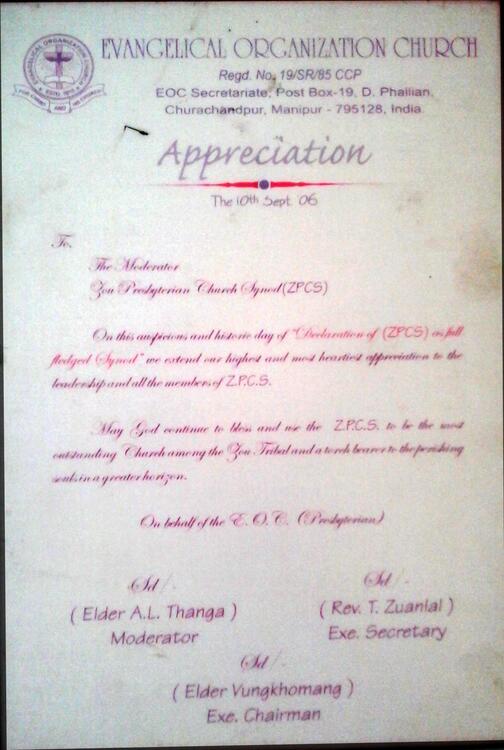 EVANGELICAL ORGANIZATION CHURCH
Regd. No. 19/SR/85 CCP
EOC Secretariate, Post Box-19, D. Phailian,
Churachandpur, Manipur - 795128, India.
Appreciation
The 10th Sept. '06
To,
The Moderator
Zou Presbyterian Church Synod (ZPCS)
On this auspicious and historic day of "Declaration of (ZPCS) as full
fledged Synod" we extend our highest and most heartiest appreciation to the
leadership and all the members of Z.P.C.S.
May God continue to bless and use the Z.P.C.S. to be the most
outstanding Church among the Zou Tribal and a torch bearer to the perishing
souls in a greater horizon.
On behalf of the E. O. C. (Presbyterian)
Sd/- Sd/-
( Elder A.L. Thanga ) ( Rev. T. Zuanlal )
Moderator Exe. Secretary
Sd/-
( Elder Vungkhomang )
Exe. Chairman